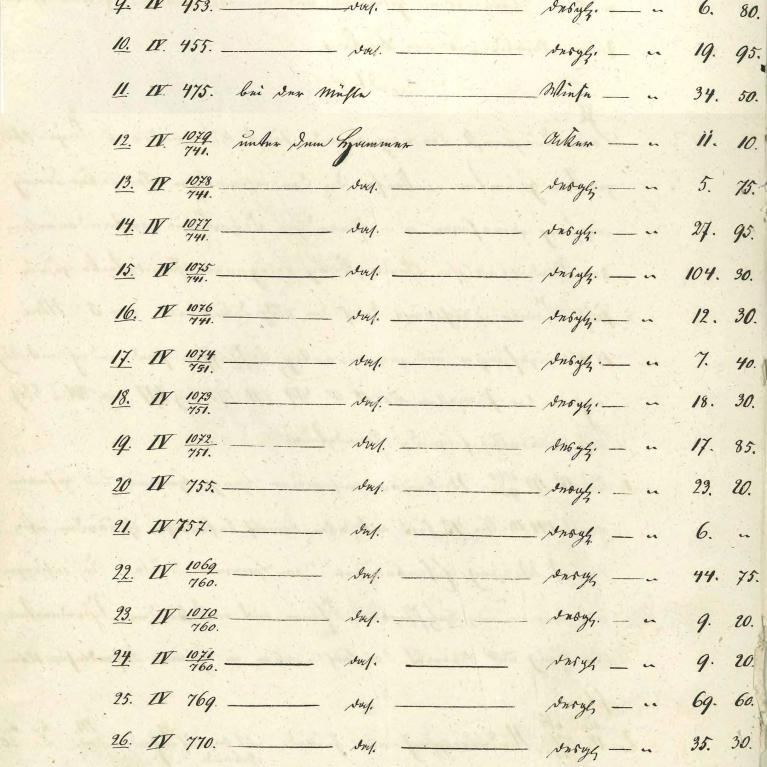 9. IV 453. — das. — desgl. — „ 6. 80.
10. IV. 455. — das. — desgl. — „ 19. 95.
11. IV 475. bei der Mühle Wiese — „ 34. 50.
12. IV. 1079/741. unter dem Hammer — Acker — „ 11. 10.
13. IV 1078/741. — das. — desgl. — „ 5. 75.
14. IV 1077/741. — das. — desgl. — „ 27. 95.
15. IV 1075/741. — das. — desgl. — „ 104. 30.
16. IV 1076/741. — das. — desgl. — „ 12. 30.
17. IV 1074/751. — das. — desgl. — „ 7. 40.
18. IV 1073/751. — das. — desgl. — „ 18. 30.
19. IV 1072/751. — das. — desgl. — „ 17. 85.
20 IV 755. — das. — desgl. — „ 23. 20.
21. IV 757. — das. — desgl. — „ 6. „
22. IV 1069/760. — das. — desgl — „ 44. 75.
23. IV 1070/760. — das. — desgl. — „ 9. 20.
24 IV 1071/760. — das. — desgl — „ 9. 20.
25. IV 769. — das. — desgl — „ 69. 60.
26. IV 770. — das. — desgl — „ 35. 30.